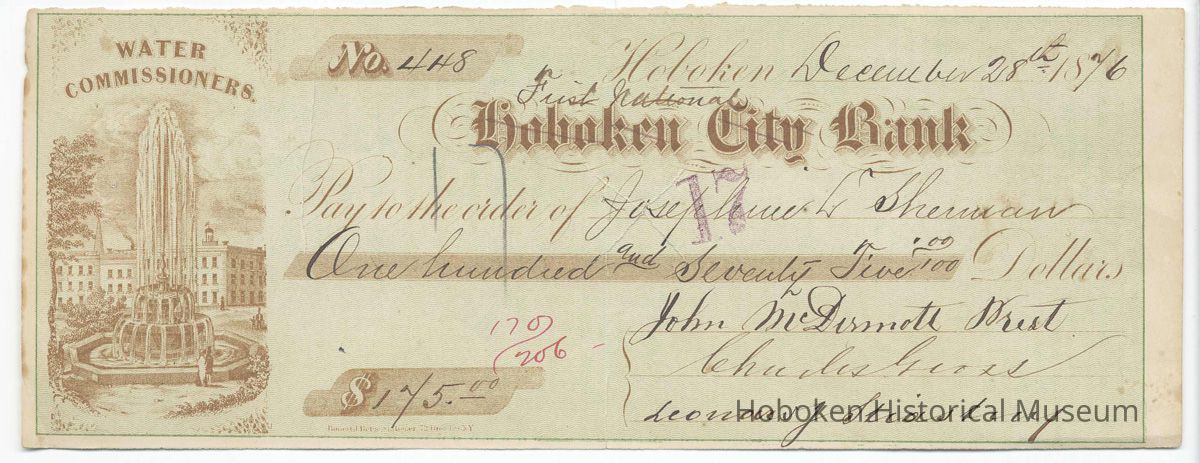 WATER
COMMISSIONERS.
No. 448
Hoboken December 28th 1876
First National
Hoboken City Bank
17
17
Pay to the order of Josephine L Sherman
One hundred and Seventy Five 00/100 Dollars
John McDermott Prest
170
206
Charles Gross
$175.00
Hoboken Historical Museum